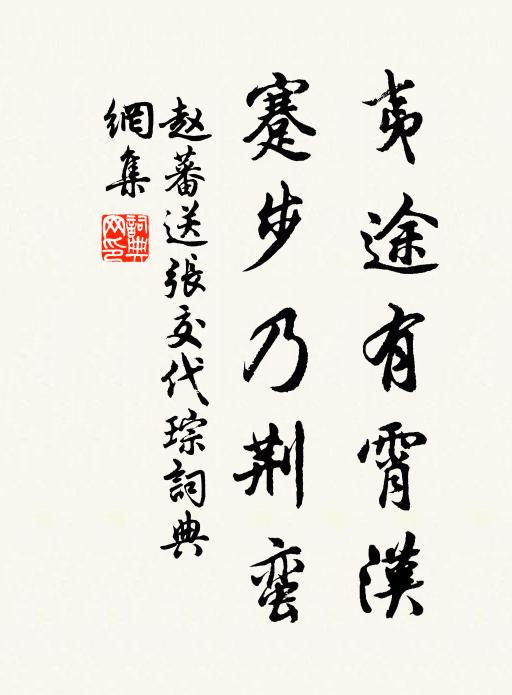 夷途有霄漢
蹇步乃荆蛮
赵蕃送張交代琮詞典
網集
詞典
网印